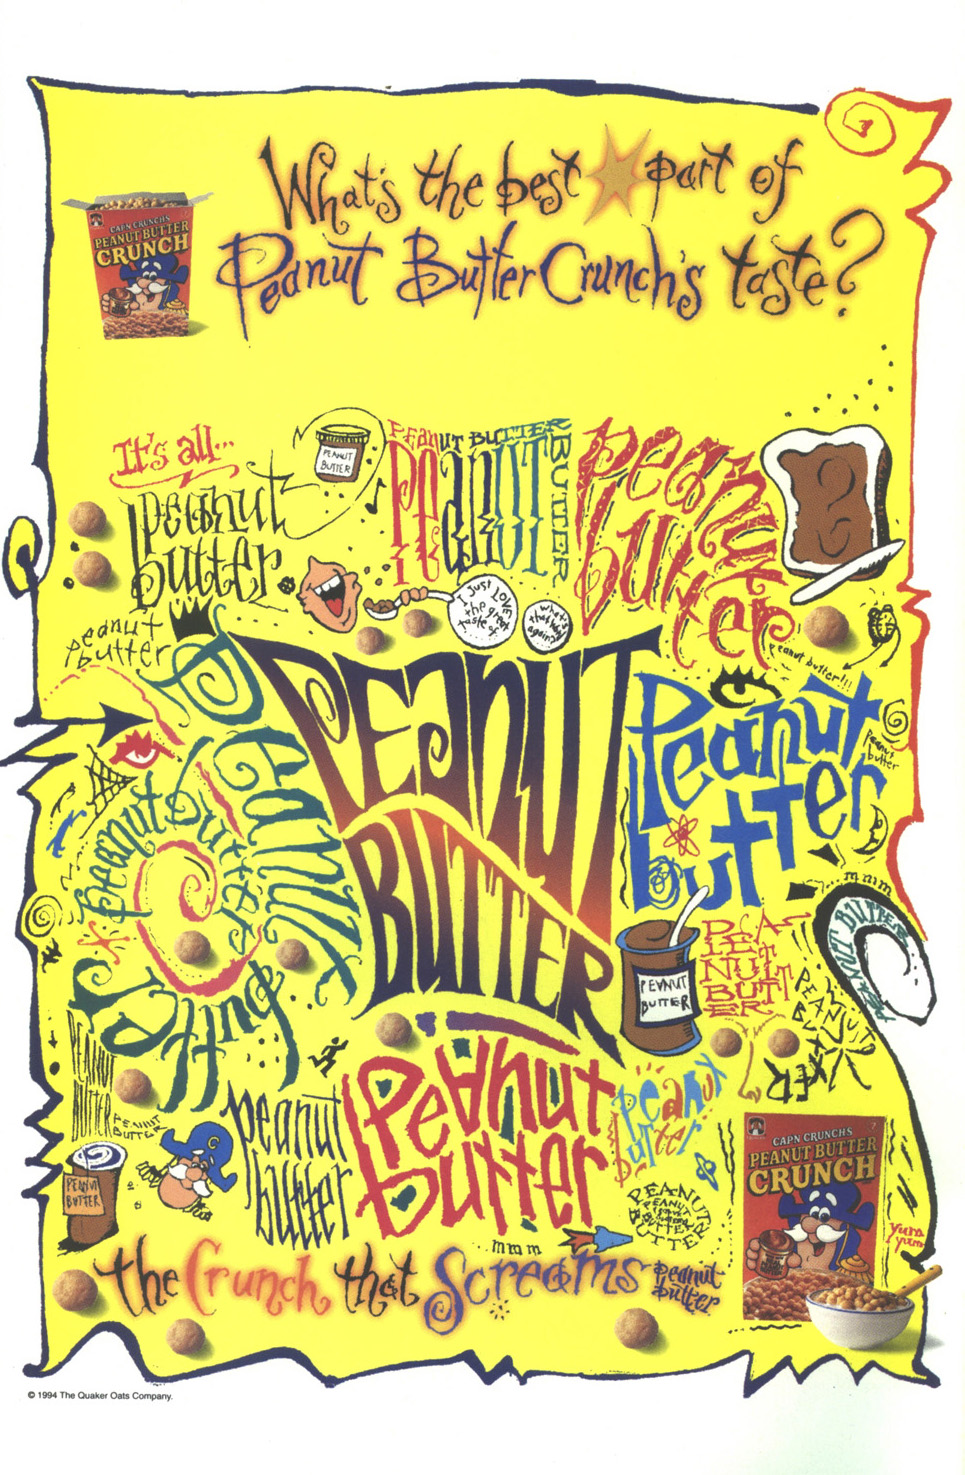 What's the best part of
Peanut Butter Crunch's taste?
CAPN CRUNCH'S
PEANUT BUTTER
CRUNCH
It's all...
peanut
butter
PEANUT
BUTTER
PEANUT BUTTER
PEANUT
BUTTER
peanut
butter
I just LOVE
the great
taste of
what's
that word
again?
peanut butter!!!
peanut
butter
Peanut
Butter
peanut butter
PEANUT
BUTTER
Peanut
butter
peanut
butter
mmm
PEANUT BUTTER
PEANUT
BUTTER
PEA-
NUT
BUTT
ER
PEANUT
BUTTER
PEANUT
BUTTER
PEANUT
BUTTER
C
PEANUT
BUTTER
peanut
butter
Peanut
butter
Peanut
butter
PEANUT
BUTTER
...mmm
the Crunch that Screams peanut
butter
CAPN CRUNCH'S
PEANUT BUTTER
CRUNCH
yum
yum
© 1994 The Quaker Oats Company.